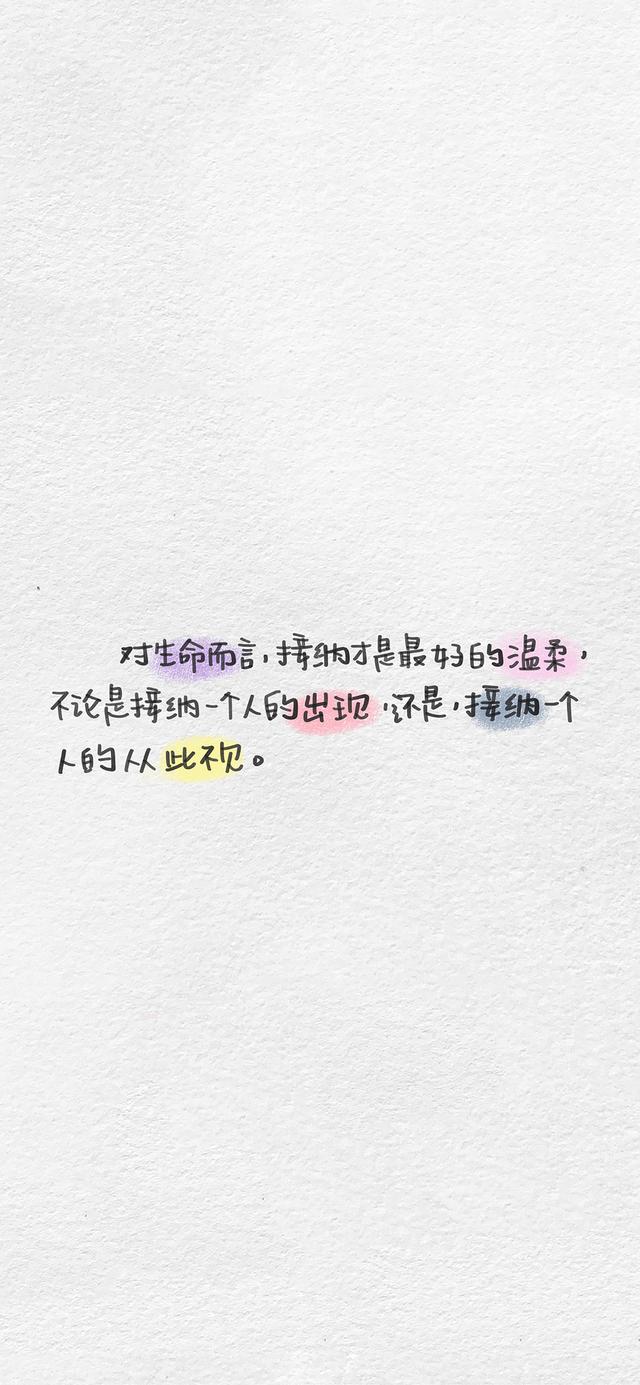 对生命而言,接纳才是最好的温柔,
不论是接纳一个人的出现,还是,接纳一个
人的从此不见。